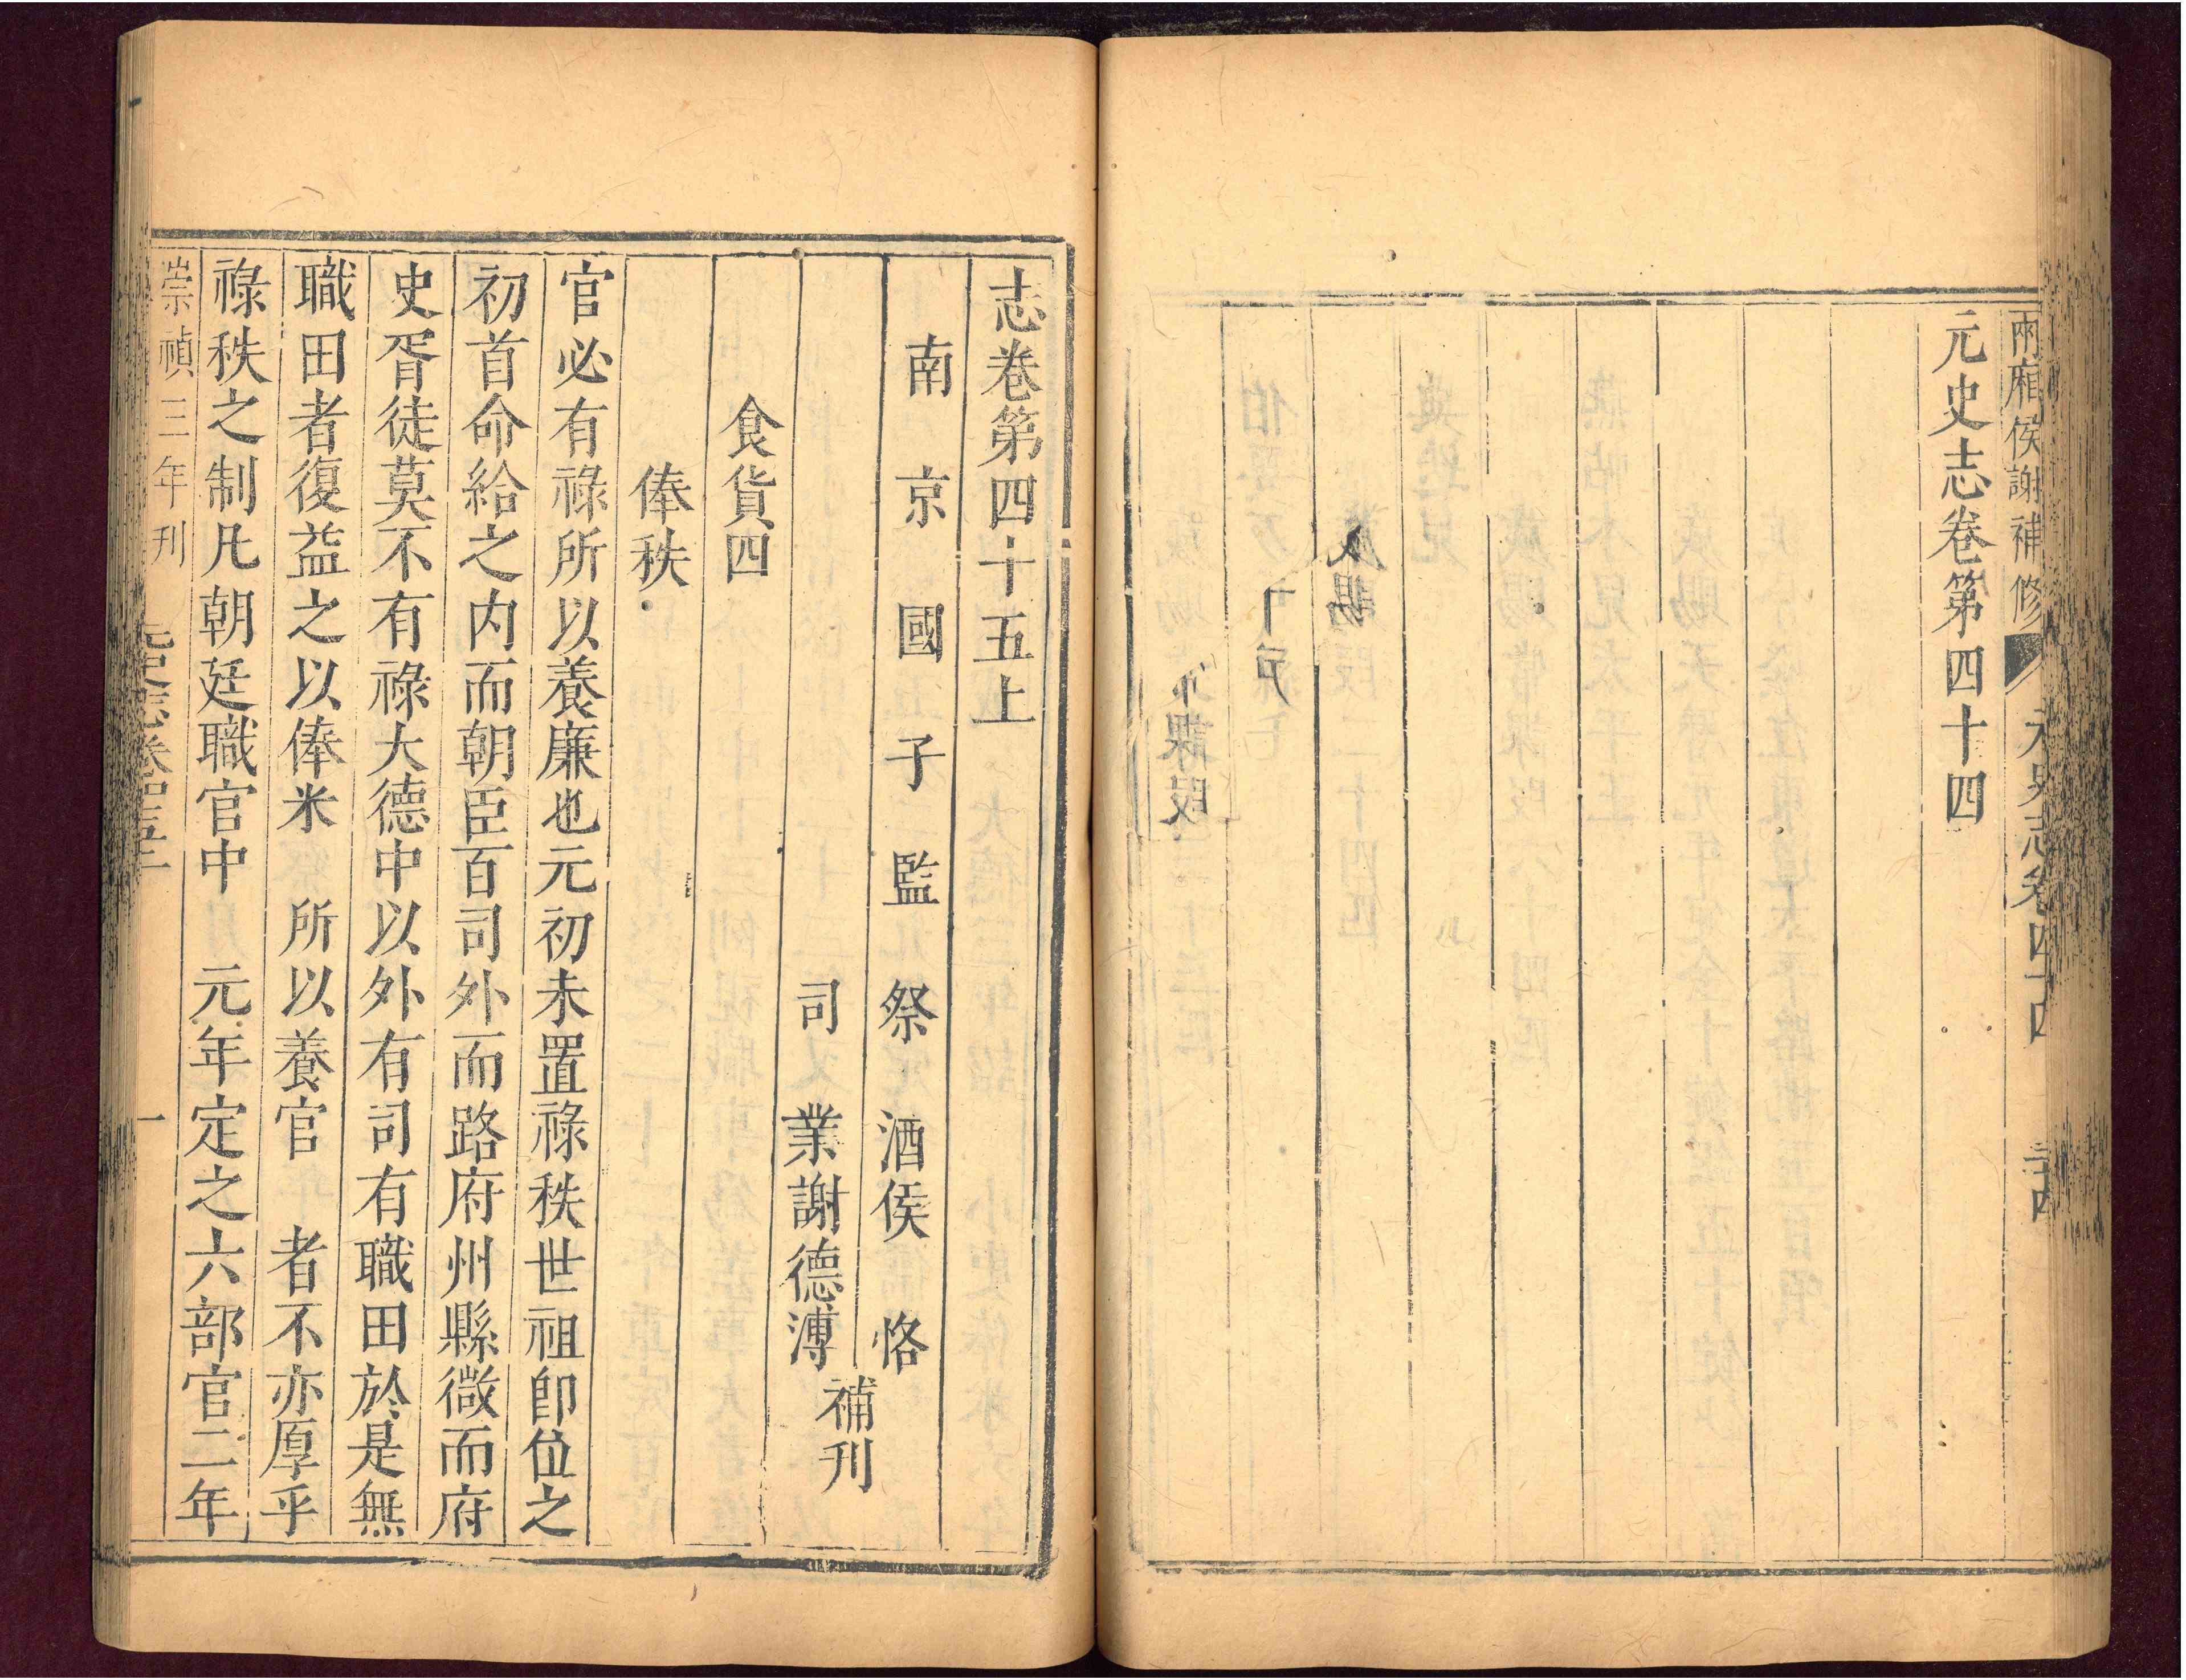 兩廂侯謝補修 元史志卷四十四
元史志卷第四十四
志卷第四十五上
南京國子監祭酒侯恪
司業謝德溥
補刊
食貨四
俸秩
官必有祿所以養廉也元初未置祿秩世祖卽位之
初首命給之内而朝臣百司外而路府州縣微而府
史胥徒莫不有祿大德中以外有司有職田於是無
職田者復益之以俸米 所以養官 者不亦厚乎
祿秩之制凡朝廷職官中 元年定之六部官二年
崇禎三年刊
一